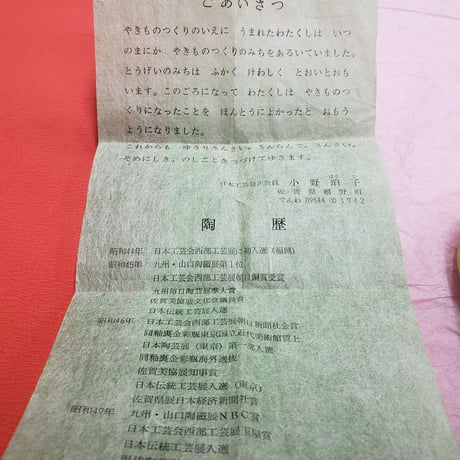 ごあいさつ
やきものつくりのいえに うまれたわたくしは いつ
のまにか やきものつくりのみちをあるいていました。
とうげいのみちは ふかく けわしく とおいとおも
います。このごろになって わたくしは やきものつ
くりになったことを ほんとうによかったと おもう
ようになりました。
これからも ゆうりきんさい。きんらんで。さんさい。
そめにしき。のしごとをつづけてゆきます。
日本工芸会正会員 小野珀子
佐賀県嬉野町
でんわ 09544 ② 1742
陶歴
昭和44年 日本工芸会西部工芸展に初入選(福岡)
昭和45年 九州・山口陶磁展第1位
日本工芸会西部工芸展朝日銀賞受賞
九州毎日陶芸展準大賞
佐賀美協展文化会議長賞
日本伝統工芸展入選
昭和46年 日本工芸会西部工芸展朝日新聞社金賞
同釉裏金彩瓶東京国立近代美術館買上
日本陶芸展(東京)第一部入選
同釉裏金彩瓶海外選抜
佐賀美協展知事賞
日本伝統工芸展入選(東京)
佐賀県展日本経済新聞社賞
昭和47年 九州・山口陶磁展NBC賞
日本工芸会西部工芸展玉屋賞
日本伝統工芸展入選